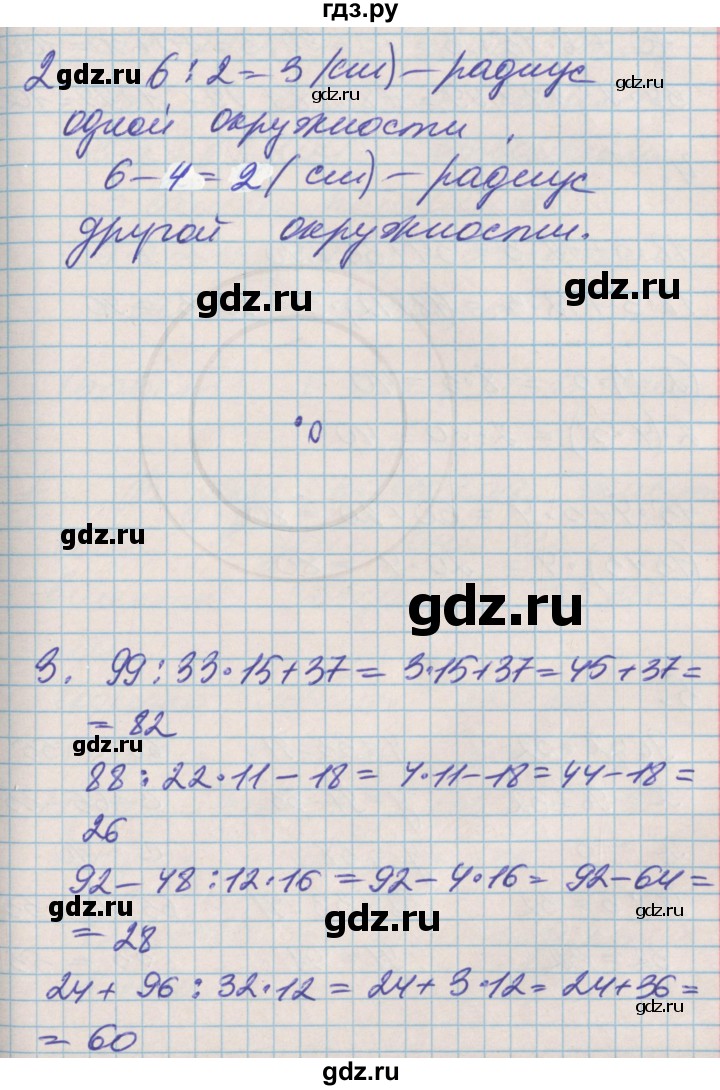 гдз.ру
2 gdz.ru 6 : 2 = 3 (см) – радиус
gdz.ru gdz.ru
одной окружности,
6 – 4 = 2 (см) – радиус
другой окружности.
gdz.ru gdz.ru
О
gdz.ru
gdz.ru
3. 99 : 33 · 15 + 37 = 3 · 15 + 37 = 45 + 37 =
= 82
gdz.ru
88 : 22 · 11 – 18 = 4 · 11 – 18 = 44 – 18 =
26
92 – 48 : 12 · 16 = 92 – 4 · 16 = 92 – 64 =
gdz.ru gdz.ru gdz.ru
= 28
24 + 96 : 32 · 12 = 24 + 3 · 12 = 24 + 36 =
= 60
gdz.ru
gdz.ru